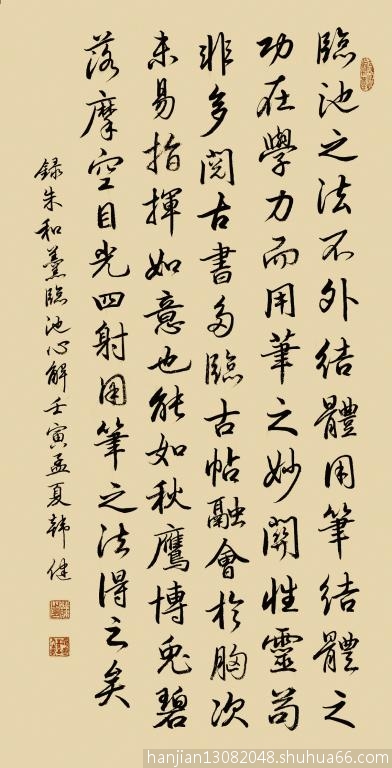 臨池之法不外結體用筆結體之
功在學力而用筆之妙關性靈苟
非多閱古書多臨古帖融會於胸次
未易指揮如意也能如秋鷹博兔碧
落摩空目光四射用筆之法得之矣
錄朱和羹臨池心解壬寅孟夏韓健
hanjian13082048.shuhua66.com